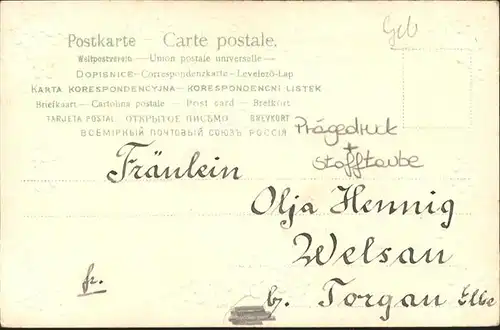 Postkarte — Carte postale.
Weltpostverein — Union postale universelle —
DOPISNICE — Correspondenzkarte — Levelező-Lap
KARTA KORESPONDENCYJNA — KORESPONDENČNI LISTEK
Briefkaart — Cartolina postale — Post card — Brefkort
TARJETA POSTAL ОТКРЫТОЕ ПИСЬМО BREVKORT
ВСЕМІРНЫЙ ПОЧТОВЫЙ СОЮЗЪ РОССІЯ
Geb
Prägedruck
+
Stofftaube
Fräulein
Olja Hennig
Welsau
fr.
b. Torgau Elbe